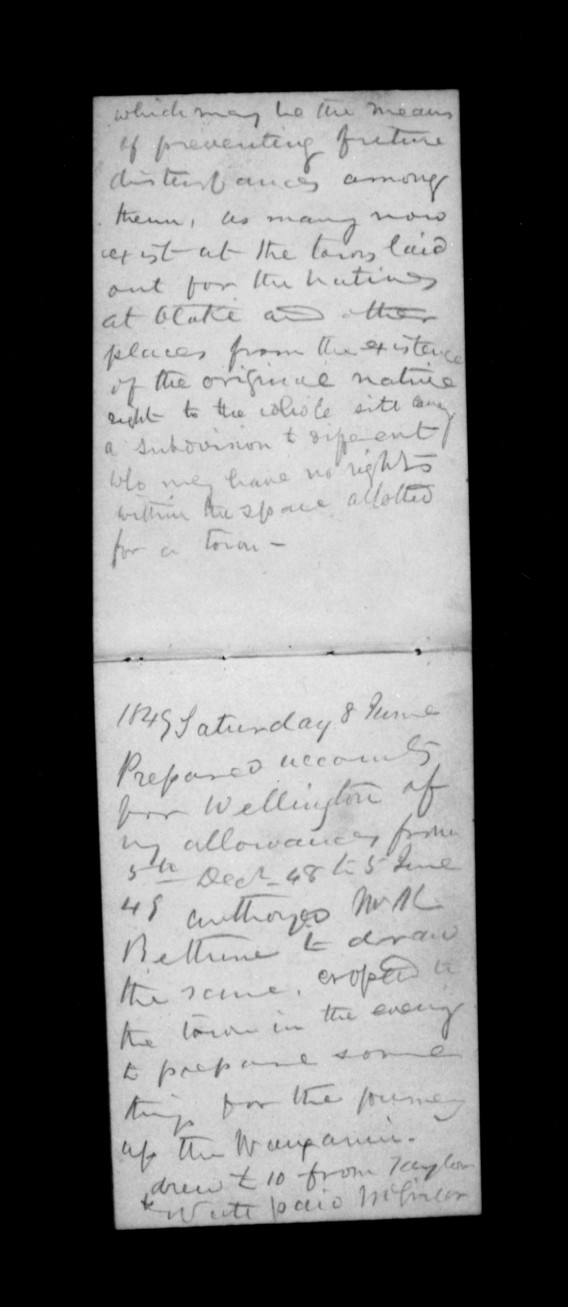 which may be the means
of preventing future
disturbances among
them, as many now
exist at the towns laid
out for the natives
at Otaki and other
places from the existence
of the original native
right to the whole site any
a subdivision to different
who may have no rights
within the space allotted
for a town -
1849 Saturday 8 June
Prepared accounts
for Wellington of
my allowances from
5th Decr 48 to 5 June
49 authorized Mr
Bethune to draw
the same. crossed to
the town in the evening
to prepare some
things for the journey
up the Wanganui.
drew £10 from Taylor
& Watt paid